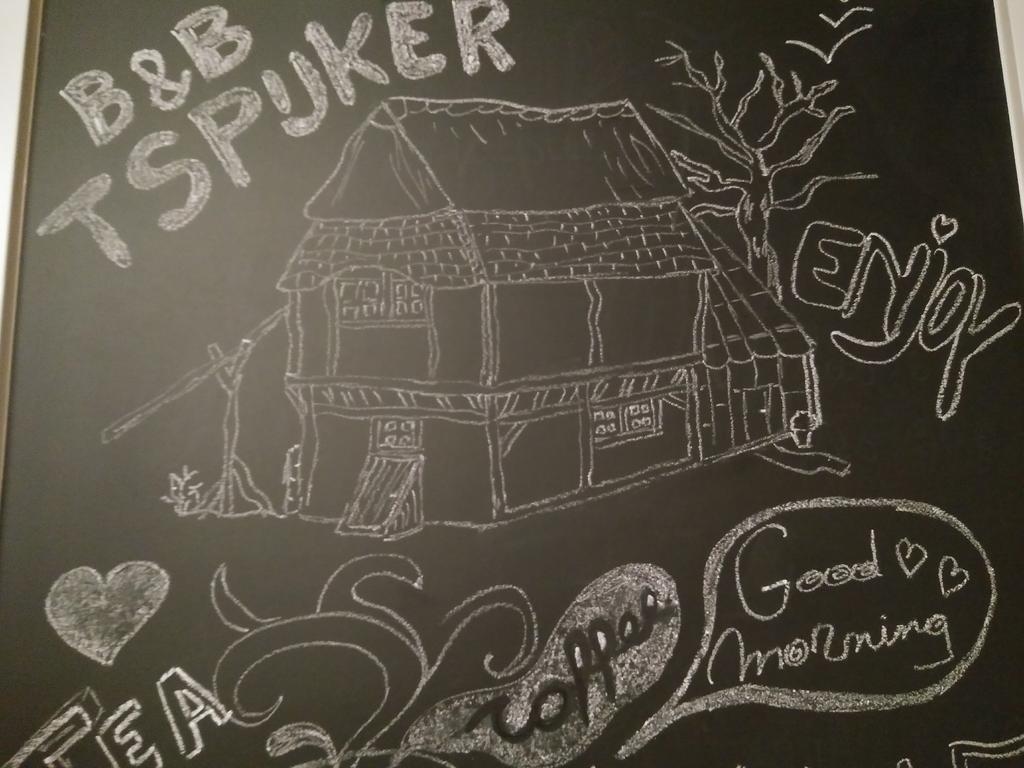 B&B
TSPIJKER
ENJOY
Good
morning
coffee
TEA